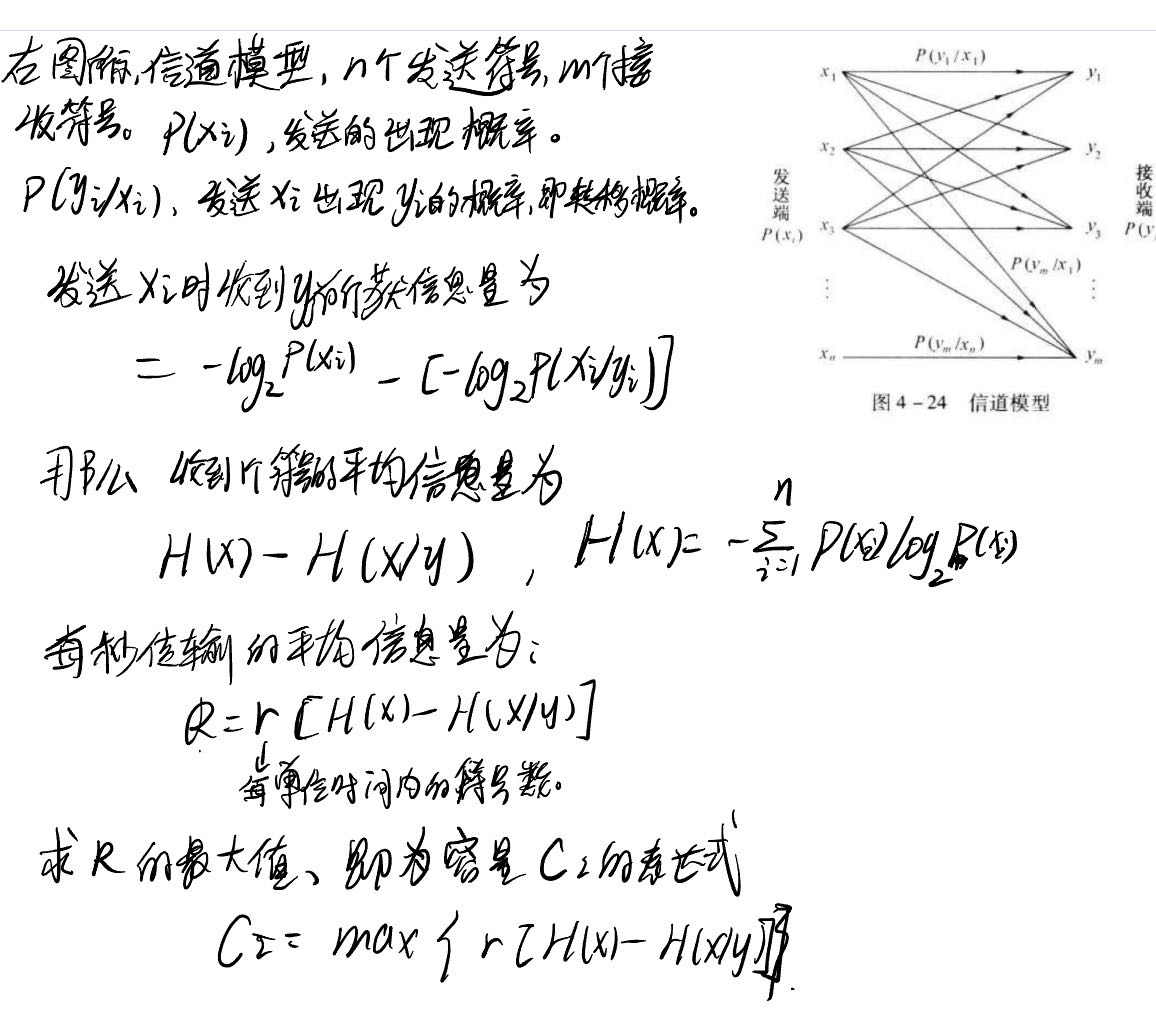 右图所示,信道模型,n个发送符号,m个接
收符号。P(xi),发送的出现概率。
P(yi/xi)、发送xi出现yi的概率,即转移概率。
发送xi时收到yi所获信息量为
= -log₂P(xi) - [-log₂P(xi/yi)]
那么 收到1个符号的平均信息量为
H(x) - H(x/y) , H(x) = -∑ⁿᵢ₌₁ P(xi)log₂P(xi)
每秒传输的平均信息量为:
R = r [H(x) - H(x/y)]
每单位时间内的符号数。
求R的最大值、即为容量C₂的表达式
C₂ = max { r [H(x) - H(x/y)]}.
P(y₁/x₁)
x₁
y₁
x₂
y₂
发送端
P(xᵢ)
接收端
P(y
x₃
y₃
P(yₘ/x₁)
⋮
⋮
P(yₘ/xₙ)
xₙ
yₘ
图 4-24 信道模型